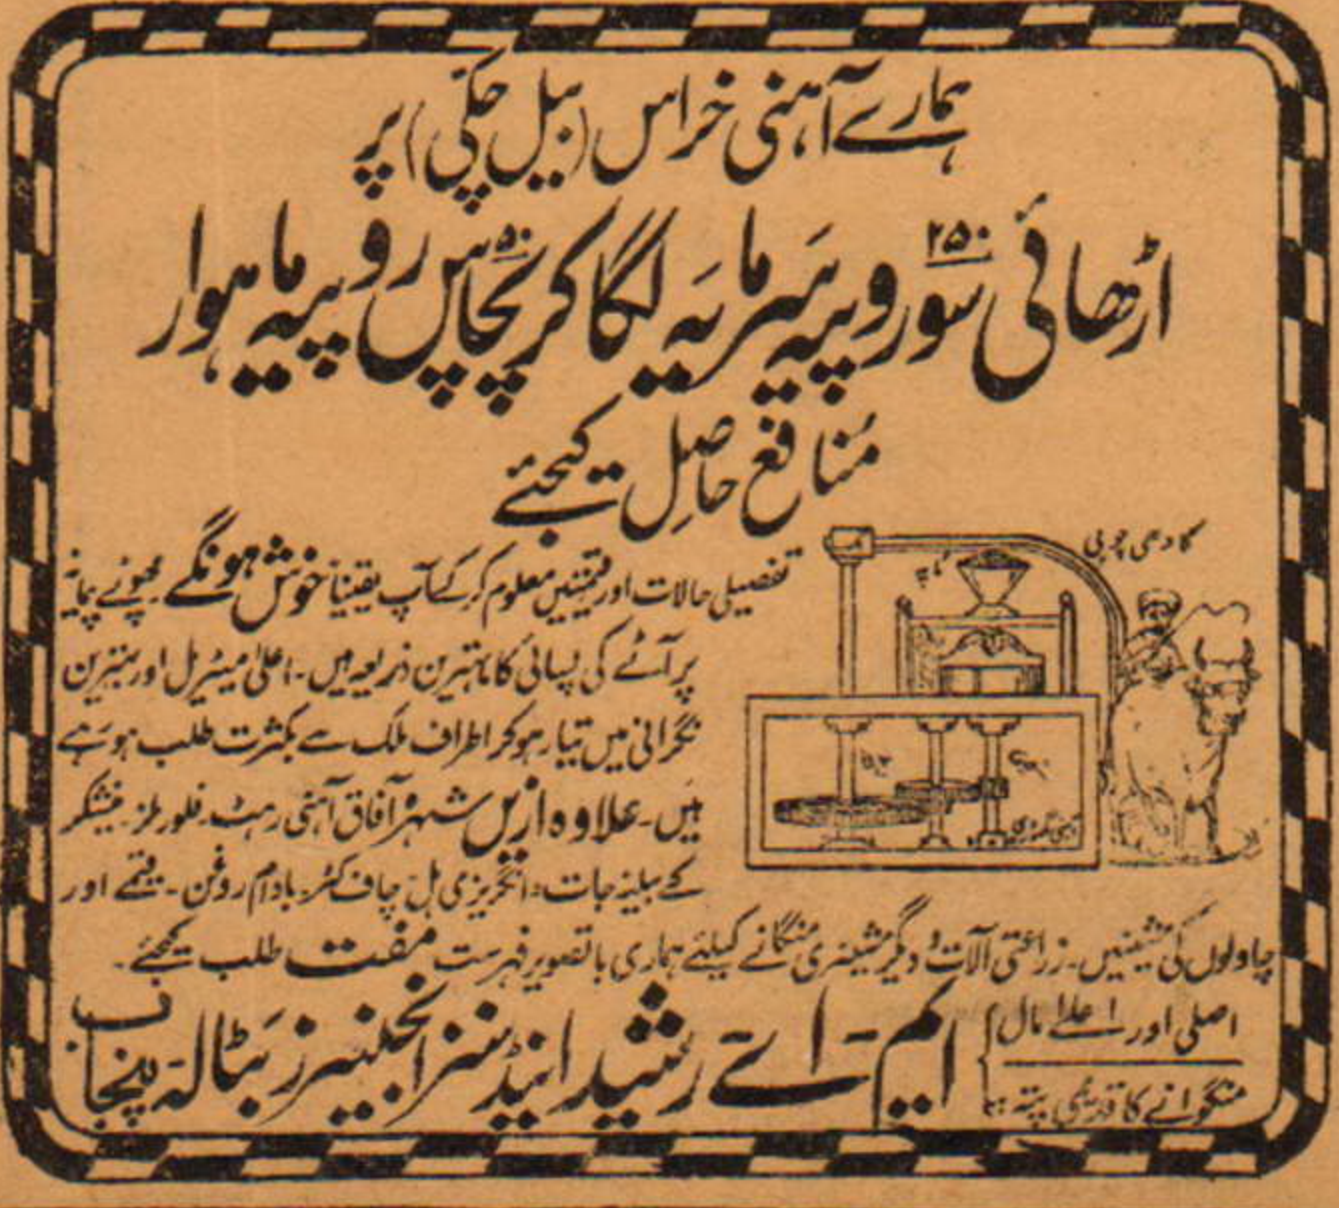 ہمارے آہنی خراس (بیل چکی) پر
اڑھائی سو ۲۵۰ روپیہ سرمایہ لگا کر پچاس ۵۰ روپیہ ماہوار
منافع حاصل کیجئے
گادھی چوبی
تفصیلی حالات اور قیمتیں معلوم کر کے آپ یقیناً خوش ہونگے۔ چھوٹے پیمانہ
پر آٹے کی پسائی کا بہترین ذریعہ ہیں۔ اعلیٰ میٹریل اور بہترین
نگرانی میں تیار ہو کر اطراف ملک سے بکثرت طلب ہو رہے
ہیں۔ علاوہ ازیں شہرہ آفاق آہنی رہٹ۔ فلور ملز۔ نیشکر
کے بیلنہ جات۔ انگریزی ہل۔ چاف کٹر۔ بادام روغن۔ قیمے اور
چاولوں کی مشینیں۔ زراعتی آلات و دیگر مشینری منگانے کیلئے ہماری باتصویر فہرست مفت طلب کیجئے۔
اصلی اور اعلےٰ مال
منگوانے کا قدیمی پتہ
ایم۔ اے رشید اینڈ سنز انجنیئرز بٹالہ پنجاب